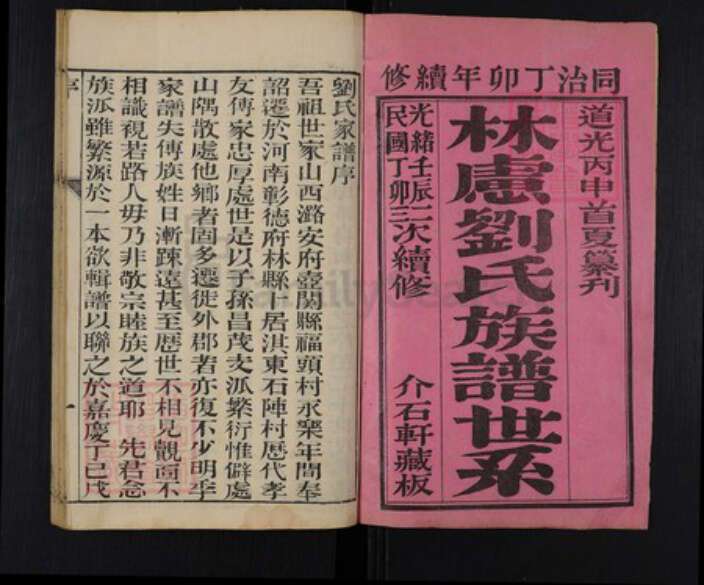 同治丁卯年續修
道光丙申首夏纂刊
林慮劉氏族譜世系
光緒壬辰二次續修
民國丁卯三次續修
介石軒藏板
劉氏家譜序
吾祖世家山西潞安府壺關縣福頭村永樂年間奉
詔遷於河南彰德府林縣卜居淇東石陣村歷代孝
友傳家忠厚處世是以子孫昌茂支派繁衍惟僻處
山隅散處他鄉者固多遷徙外郡者亦復不少明季
家譜失傳族姓日漸踈遠甚至歷世不相見覿面不
相識視若路人毋乃非敬宗睦族之道耶 先君念
族派雖繁源於一本欲輯譜以聯之於嘉慶丁巳戊
序
一